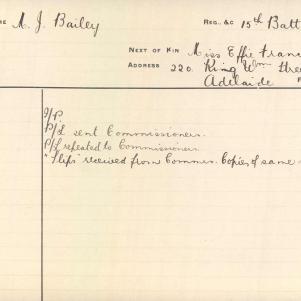 ME M. J. Bailey REG. &C 15th Batt
NEXT OF KIN Miss Effie Franc
ADDRESS 220. King Wm Stree
Adelaide
I/P.
P/L sent Commissioners.
P/L repeated to Commissioners
"Slips" received from Commrs. Copies of same